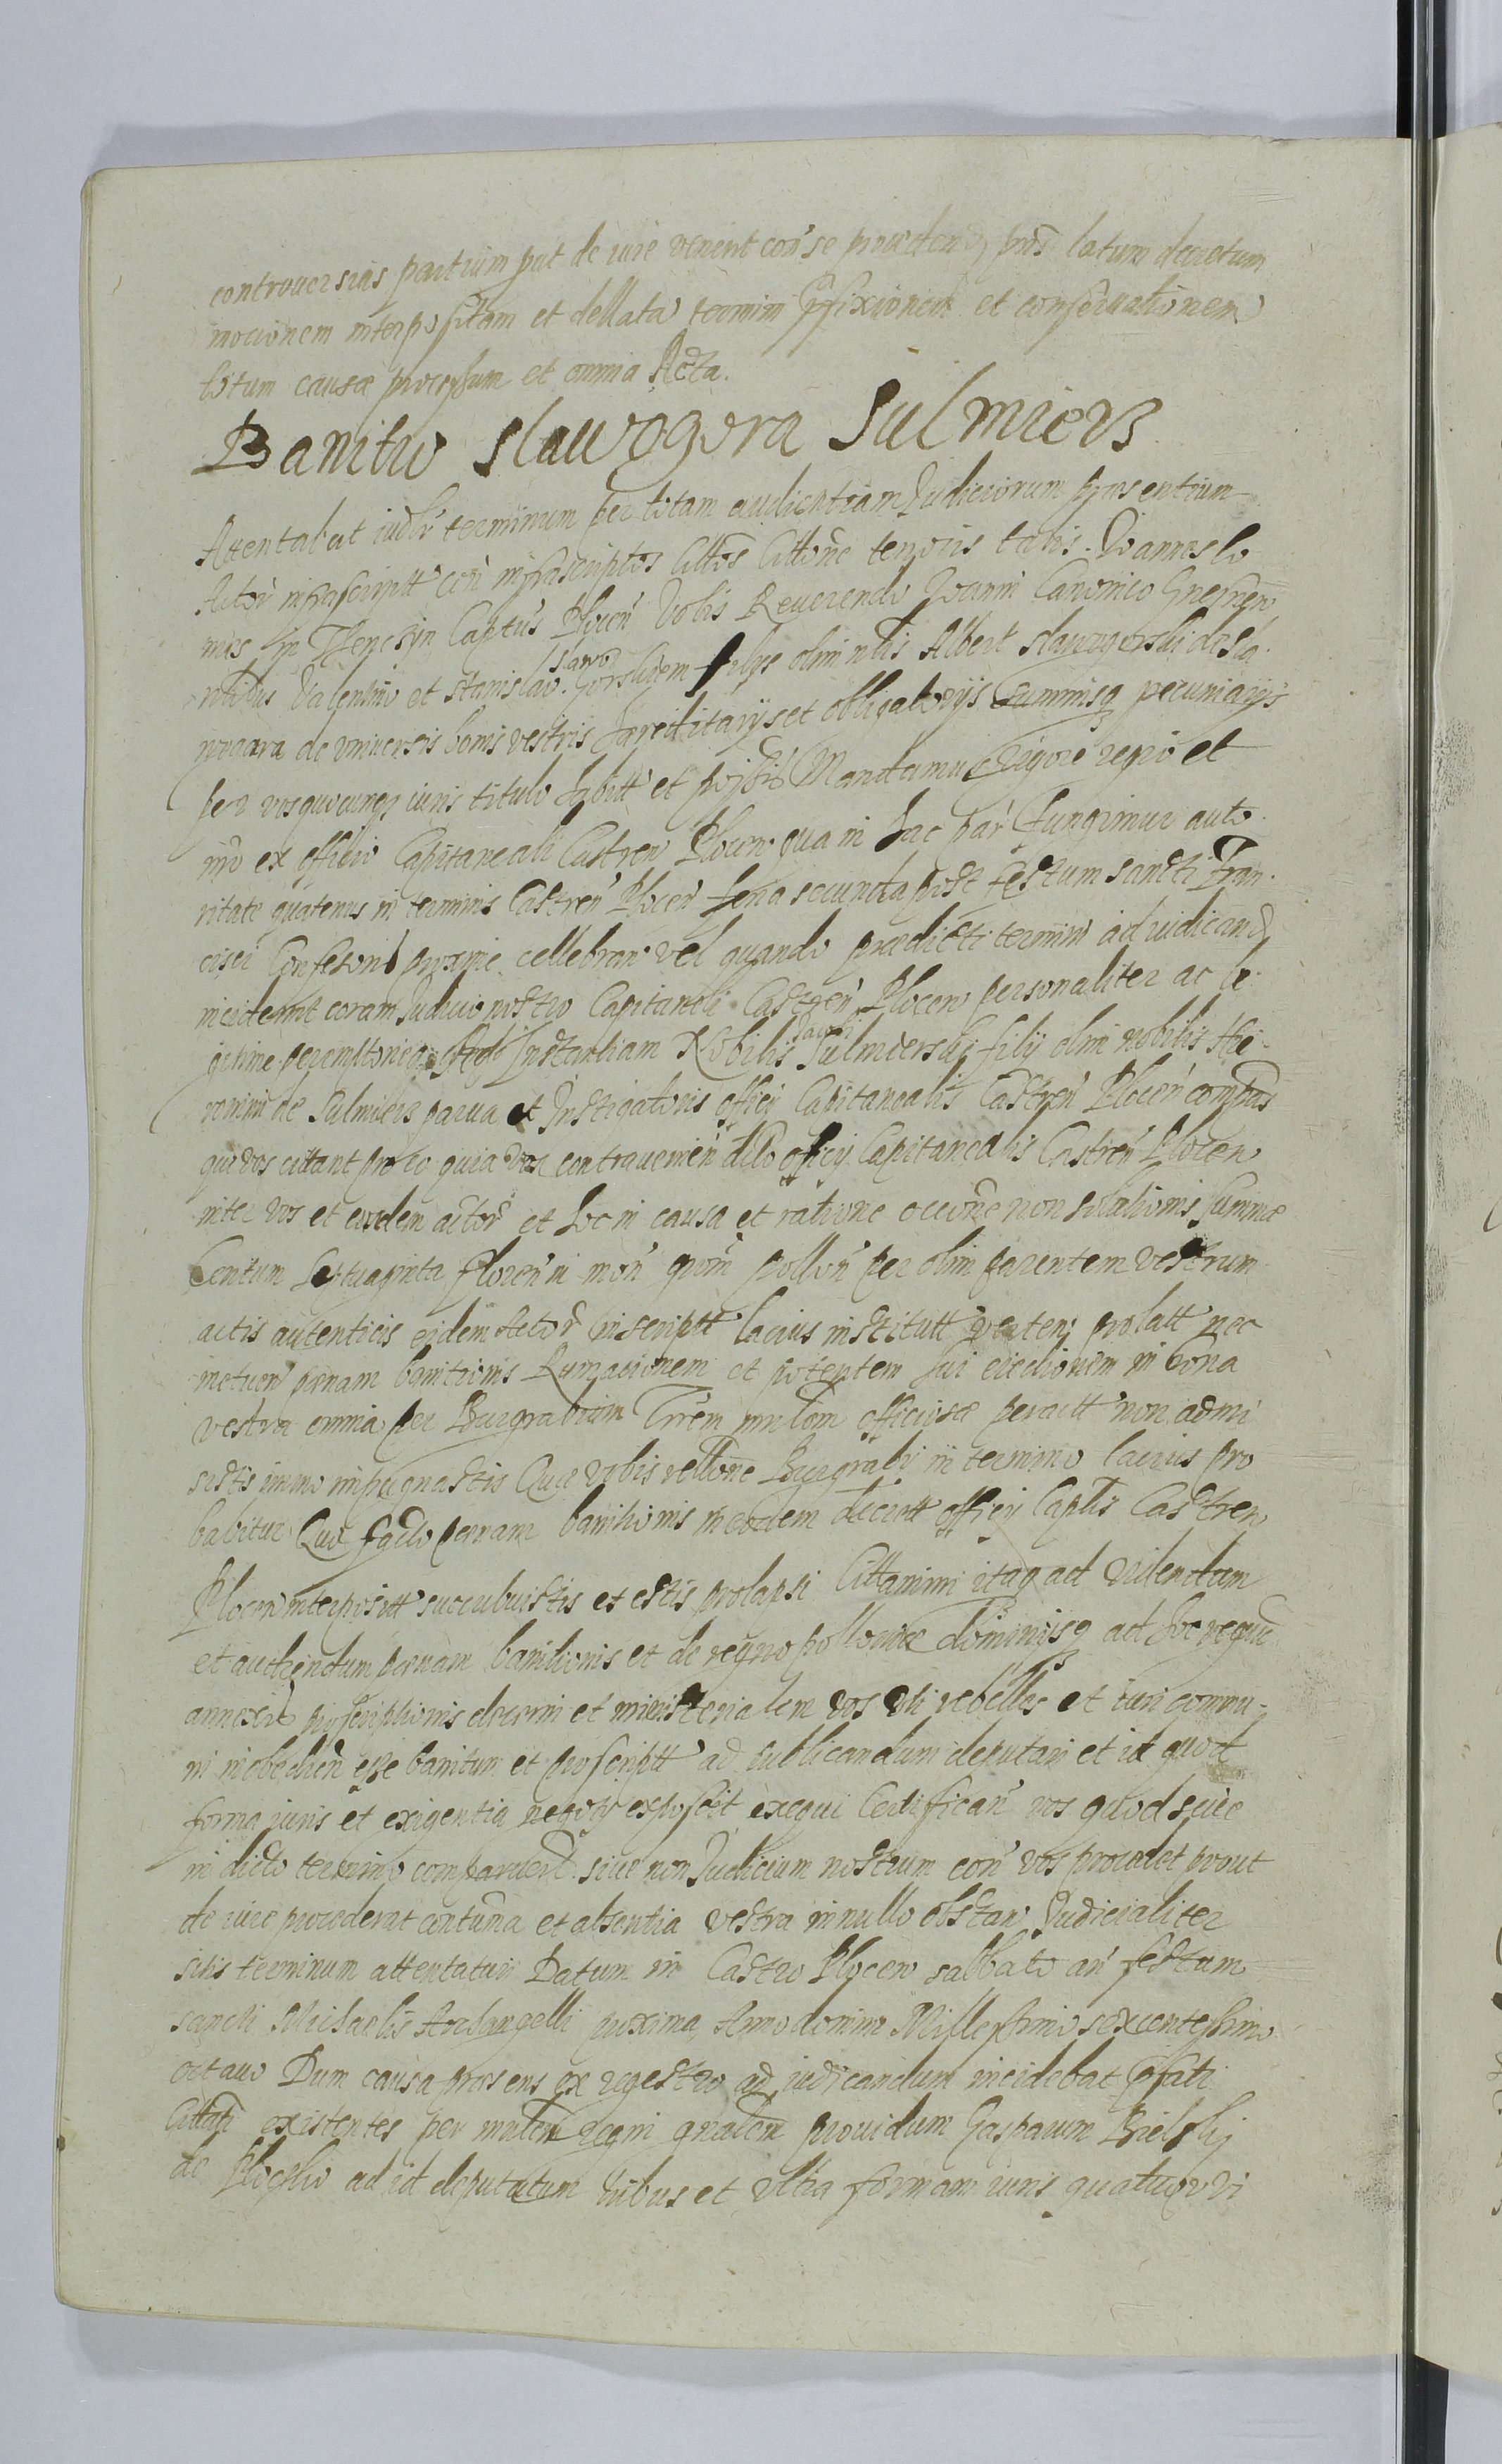 controuersias partium put de iure venerit con' se procedend. pns latum decretum
mocionem interpositam et dellata termini pfixionem et conseruationem
totum causæ processum et omnia Acta.
Banitio Slawogora Sulmiers
Attentabat iudlr terminum per totam audientiam Judiciorum præsentium
Actor infrascriptt con' infrascriptos Cittos Cittone tenoris talis. Joannes Co
mes in Thenczyn Captus Plocen Vobis Reuerendo Joanni Canonico Gnesnen
nobilibus Valentino et Stanislao Slawogorskiem filys olim nlis Albert Slawogorski de Sla
wogora de vniuersis bonis vestris hæreditarys et obligatorijs summisq pecuniarijs
per vos quocunq iuris titulo habitt et possis Mandamus Rigore regio et
nro ex officio Capitaneali Castren Plocen qua in hac par' fungimur auto
ritate quatenus in terminis Castren Plocen feria secunda post festum sancti Fran
cisci Confesoris proxime cellebran vel quando prædicti termini ad iudicand
inciderint coram Judicio nostro Capitaneali Castren Plocen personaliter ac le
gitime peremptorieq ad Instantiam Nobilis Pauli Sulmierski filij olim nobilis Hie
ronimi de Sulmiers parua et Instigatoris officij Capitanealis Castren Plocen compas
qui vos cittant pro eo quia vos contrauenien dicto officij Capitanealis Castren Plocen
inter vos et eundem actor et hoc in causa et ratione occone non solutionis summæ
Centum Septuaginta floren in mon' pollon' per olim parentem vestrum
actis autenticis eidem Actor inscriptt lacius institutt verten prolatt nec
metuen pænam banitionis Rumacionem et potentem sui eiectionem in bona
vestra omnia per Burgrabium officiosæ peractt non admi
sistis immo impugnastis Quæ vobis rellone Burgrabij in termino lacius pro
babitur Quo facto pænam banitionis in eodem decrett officij Captlis Castren
Plocen interpositt succubuistis et estis prolapsi Cittamini itaq ad videndum
et audiendum pænam banitionis et de regno polloniæ dominijsq ad hoc regnu
annexis proscriptionis decerni et ministerialem vos vti rebelles et iuri commu
ni inobedien esse banitum et proscriptt ad publicandum deputari et id quod
forma iuris et exigentia negotij exposcit exequi Certifican vos quod siue
in dicto termino comparuerit siue non Judicium nostrum con' vos procedet prout
de iure procederat contuma et absentia vestra in nullo obstan Judicialiter
sitis terminum attentaturi Datum in Castro Plocen sabbato an' festum
sancti Michaelis Archangelli proxima Anno domini Millesimo sexcentesimo
octauo Dum causa præsens ex regestro ad iudicandum incidebat pfati
Cittati existentes per mnlem regni gnalem prouidum Gasparum Bielski
de Plocsko ad id deputatum tribus et vltra formam iuris quattuor vi